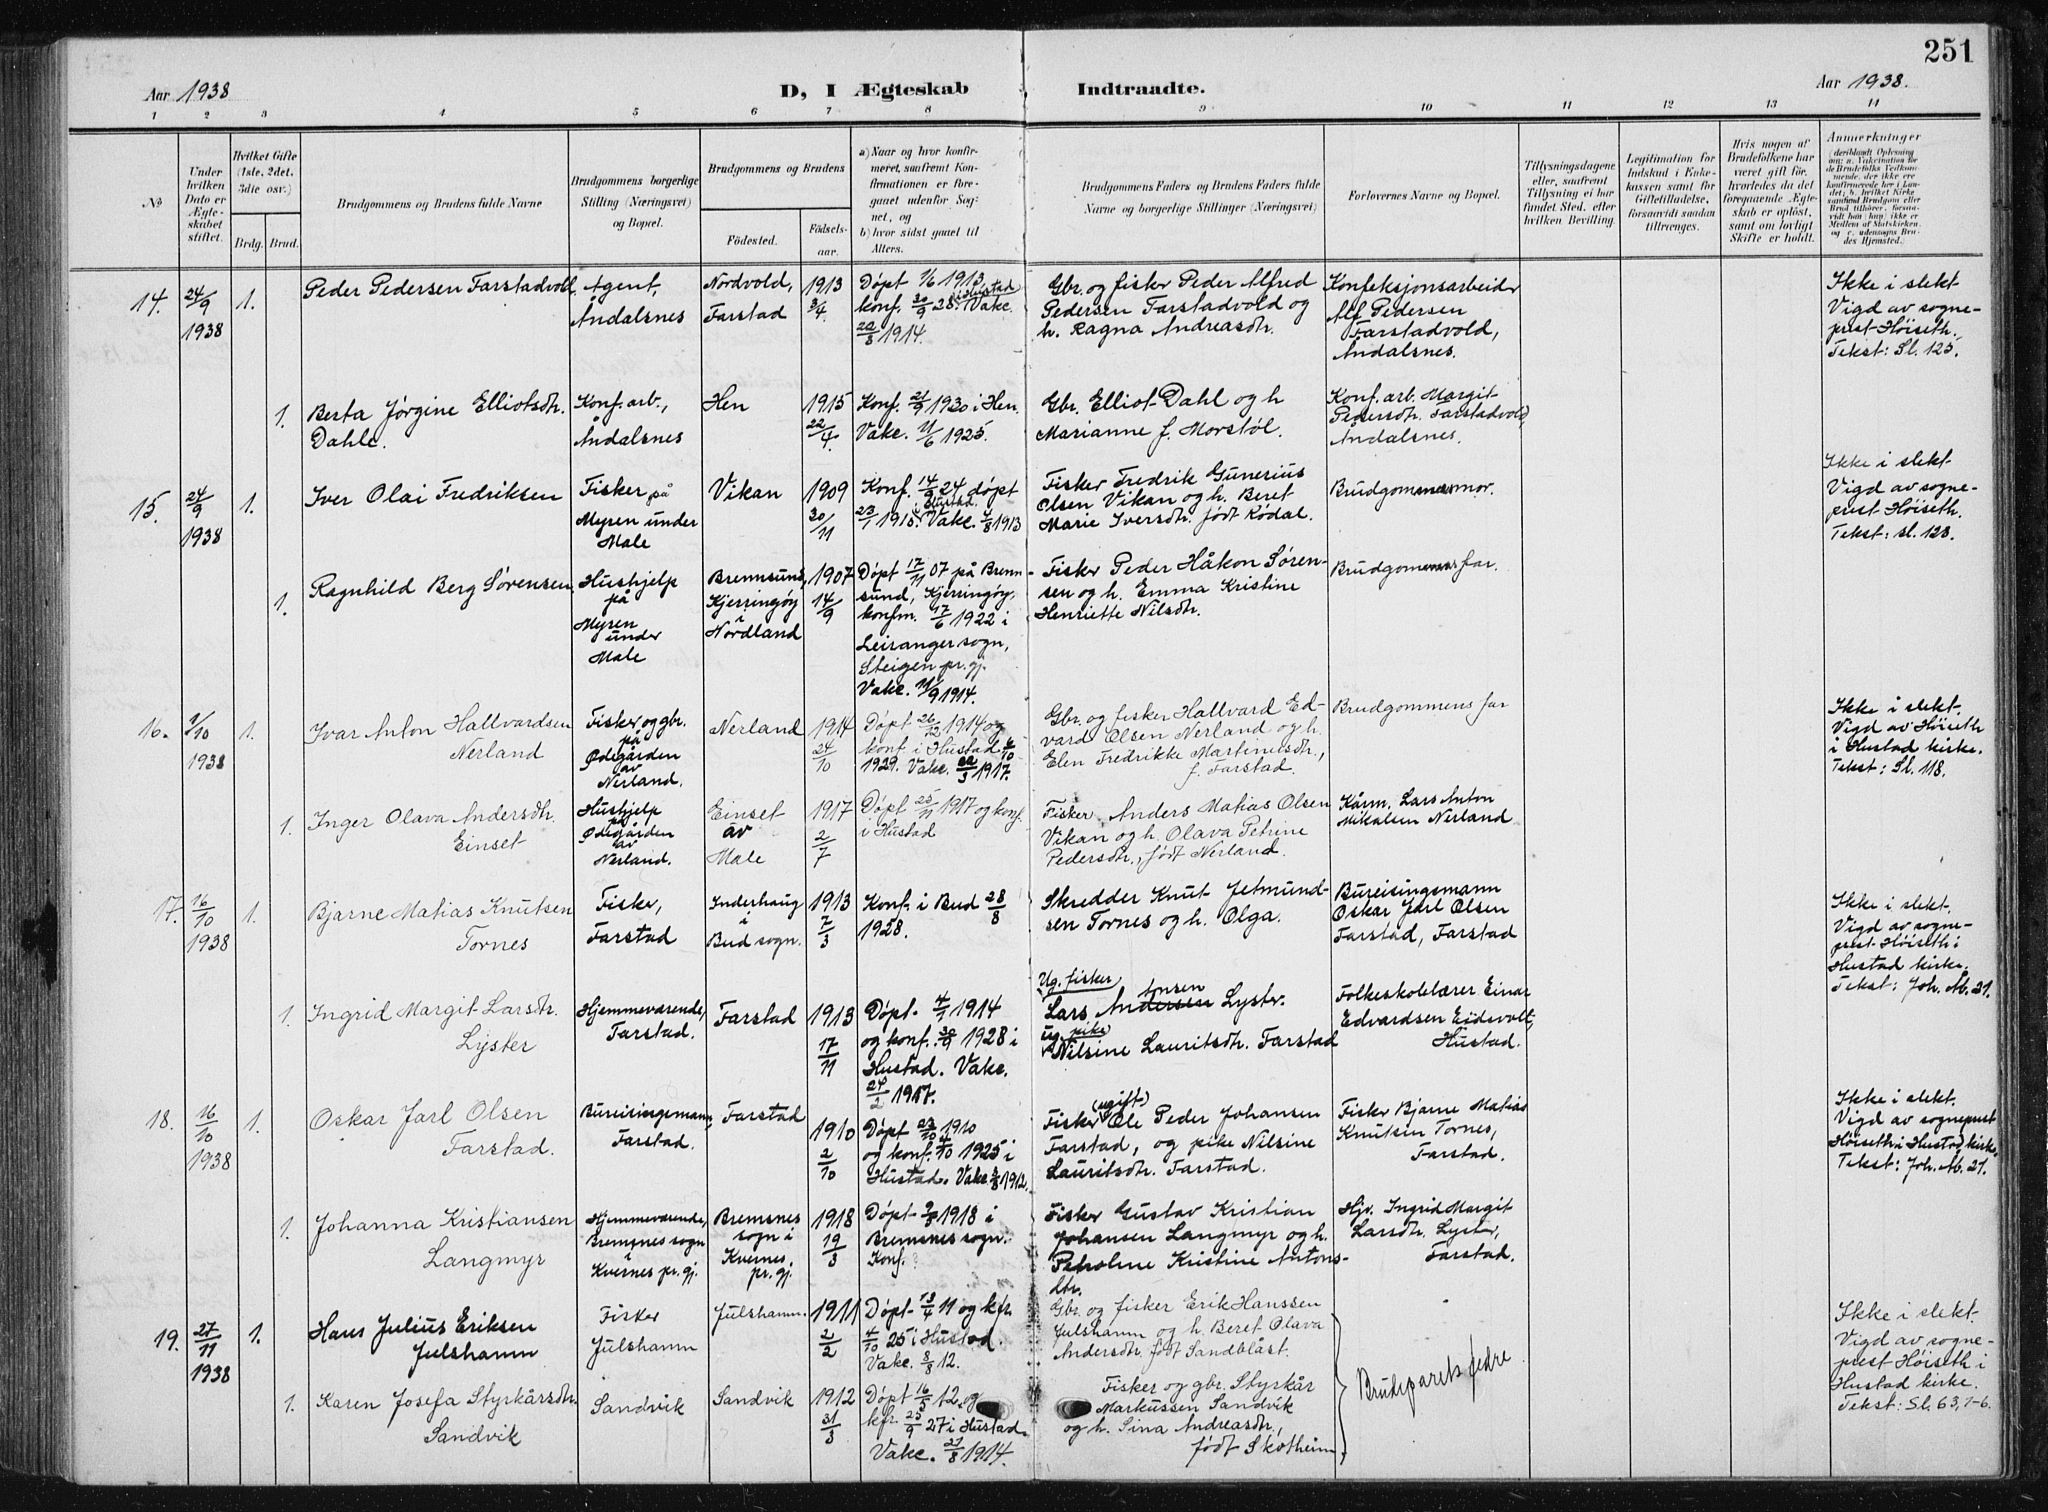 251
Aar 1938
D, I Ægteskab Indtraadte.
Aar 1938.
1 2 3 4 5 6 7 8 9 10 11 12 13 14
№
Under
hvilken
Dato er
Ægte-
skabet
stiftet.
Hvilket Gifte
(1ste, 2det,
3die osv.)
Brdg. Brud.
Brudgommens og Brudens fulde Navne
Brudgommens borgerlige
Stilling (Næringsvei)
og Bopæl.
Brudgommens og Brudens
Födested.
Födsels-
aar.
a) Naar og hvor konfir-
meret, saafremt Kon-
firmationen er fore-
gaaet udenfor Sog-
net, og
b) hvor sidst gaaet til
Alters.
Brudgommens Faders og Brudens Faders fulde
Navne og borgerlige Stillinger (Næringsvei)
Forlovernes Navne og Bopæl.
Tillysningsdagene
eller, saafremt
Tillysning ei har
fundet Sted, efter
hvilken Bevilling.
Legitimation for
Indskud i Enke-
kassen samt for
Giftetilladelse,
forsaavidt saadan
tiltrænges.
Hvis nogen af
Brudefolkene har
været gift för,
hvorledes da det
foregaaende Ægte-
skab er oplöst,
samt om lovligt
Skifte er holdt.
Anmerkninger
(deriblandt Oplysning
om: a. Vakcination for
de Brudefolks Vedkom-
mende, der ikke ere
konfirmerede her i Lan-
det; b. hvilket Kirke
samfund Brudgom eller
Brud tilhörer, forsaa-
vidt han (hun) ikke er
Medlem af Statskirken,
og c. udensogns Bru-
des Hjemsted.
14. 24/9 1938 1.
Peder Pedersen Farstadvoll
Agent,
Åndalsnes
Nordvold,
Farstad
1913
3/4
Døpt 1/6 1913
konf. 30/9 28 i Hustad. Vakc.
22/8 1914.
Gbr. og fisker Peder Alfred
Pedersen Farstadvold og
h. Ragna Andreasdtr.
Konfeksjonsarbeider
Alf Pedersen
Farstadvold,
Åndalsnes.
Ikke i slekt
Vigd av sogne-
prest Høiseth.
Tekst: Sl. 125.
1. Berta Jørgine Elliotsdtr.
Dahle.
Konf. arb.,
Åndalsnes
Hen
1915
22/4.
Konf. 21/9 1930 i Hen.
Vakc. 11/6 1925.
Gbr. Elliot Dahl og h
Marianne f. Morstøl.
Konf. arb. Margit
Pedersdtr. Farstadvold,
Åndalsnes.
15. 24/9 1938 1.
Iver Olai Fredriksen
Fisker på
Myren under
Male
Vikan
1909
30/11
Konf. 14/9 24 døpt
23/1 1910 i Hustad. Vakc. 4/8 1913
Fisker Fredrik Gunerius
Olsen Vikan og h. Beret
Marie Iversdtr. født Rødal.
Brudgommens mor.
Ikke i slekt
Vigd av sogne-
prest Høiseth.
Tekst: sl. 123.
1. Ragnhild Berg Sørensen
Hushjelp
på
Myren
under
Male
Brennsund,
Kjerringøy
i
Nordland
1907
14/9
Døpt 17/11 07 på Brenn-
sund, Kjerringøy,
konfm. 17/6 1922 i
Leiranger sogn,
Steigen pr.gj.
Vakc. 11/9 1914.
Fisker Peder Håkon Søren-
sen og h. Emma Kristine
Henriette Nilsdtr.
Brudgommens far.
16. 1/10 1938 1.
Ivar Anton Hallvardsen
Nerland
Fisker og gbr.
på
Ødegården
av
Nerland.
Nerland
1914
24/10
Døpt 26/12 1914 og
konf. i Hustad 6/10
1929. Vakc. 22/3 1917.
Gbr. og fisker Hallvard Ed-
vard Olsen Nerland og h.
Elen Fredrikke Martinusdtr.,
f. Farstad.
Brudgommens far
Ikke i slekt.
Vigd av Høiseth
i Hustad kirke.
Tekst: Sl. 118.
1. Inger Olava Andersdtr.
Einset
Hushjelp
på
Ødegården
av
Nerland.
Einset
av
Male
1917
2/7
Døpt 25/11 1917 og konf.
i Hustad
Fisker Anders Matias Olsen
Vikan og h. Olava Petrine
Pedersdtr., født Nerland.
Kårm. Lars Anton
Mikalsen Nerland
17. 16/10 1938 1.
Bjarne Matias Knutsen
Tornes
Fisker,
Farstad
Inderhaug
i
Bud sogn.
1913
7/3
Konf. i Bud 28/8
1928.
Skredder Knut Jetmund-
sen Tornes og h. Olga.
Bureisingsmann
Oskar Jarl Olsen
Farstad, Farstad
Ikke i slekt.
Vigd av sogne-
prest Høiseth i
Hustad kirke.
Tekst: Joh. Åb. 21.
1. Ingrid Margit Larsdtr.
Lyster
Hjemmeværende,
Farstad.
Farstad
1913
17/11
Døpt 4/1 1914
og konf. 30/9 1928 i
Hustad. Vakc.
24/2 1917.
Ug. fisker
Lars Andersen Lyster.
ug. pike
Nilsine Lauritsdtr. Farstad
Folkeskolelærer Einar
Edvardsen Eidsvolt,
Hustad.
18. 16/10 1938 1.
Oskar Jarl Olsen
Farstad.
Bureisingsmann,
Farstad.
Farstad
1910
2/10
Døpt 23/10 1910
og konf. 4/10 1925 i
Hustad. Vakc. 2/8 1912.
(ugift)
Fisker Ole Peder Johansen
Farstad, og pike Nilsine
Lauritsdtr. Farstad.
Fisker Bjarne Matias
Knutsen Tornes,
Farstad.
Ikke i slekt.
Vigd av sogneprest
Høiseth i Hustad kirke.
Tekst: Joh. Åb. 21.
1. Johanna Kristiansen
Langmyr
Hjemmeværende,
Bremsnes sogn
i
Kvernes pr.gj.
Bremsnes
sogn i
Kvernes
pr.gj.
1918
19/3
Døpt 1918 i
Bremsnes sogn.
Konf.?
Fisker Gustav Kristian
Johansen Langmyr og h.
Petroline Kristine Antons-
dtr.
Hjv. Ingrid Margit
Larsdtr. Lyster,
Farstad.
19. 27/11 1938 1.
Hans Julius Eriksen
Julshamn
Fisker
Julshamn
Julshamn.
1911
2/2
Døpt 13/4 11 og kfr.
4/10 25 i Hustad.
Vakc. 8/8 12.
Gbr. og fisker Erik Hanssen
Julshamn og h. Beret Olava
Andersdtr. født Sandblåst.
Brudeparets fedre
Ikke i slekt.
Vigd av sogne-
prest Høiseth i
Hustad kirke.
Tekst: Sl. 63, 1-6.
1. Karen Josefa Styrkårsdtr.
Sandvik
Sandvik
Sandvik
1912
31/3
Døpt 16/5 12 og
kfr. 25/9 27 i Hustad.
Vakc. 21/8 1914.
Fisker og gbr. Styrkår
Markussen Sandvik
og h. Sina Andreasdtr.,
født Skotheim